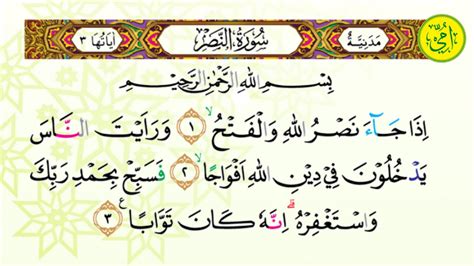 مَدَنِيَّةٌ سُورَةُ النَّصْرِ اٰيَاتُهَا ٣
بِسْمِ اللهِ الرَّحْمٰنِ الرَّحِيْمِ
اِذَا جَآءَ نَصْرُ اللهِ وَالْفَتْحُۙ ١ وَرَاَيْتَ النَّاسَ
يَدْخُلُوْنَ فِيْ دِيْنِ اللهِ اَفْوَاجًاۙ ٢ فَسَبِّحْ بِحَمْدِ رَبِّكَ
وَاسْتَغْفِرْهُۗ اِنَّهٗ كَانَ تَوَّابًا ࣖ ٣